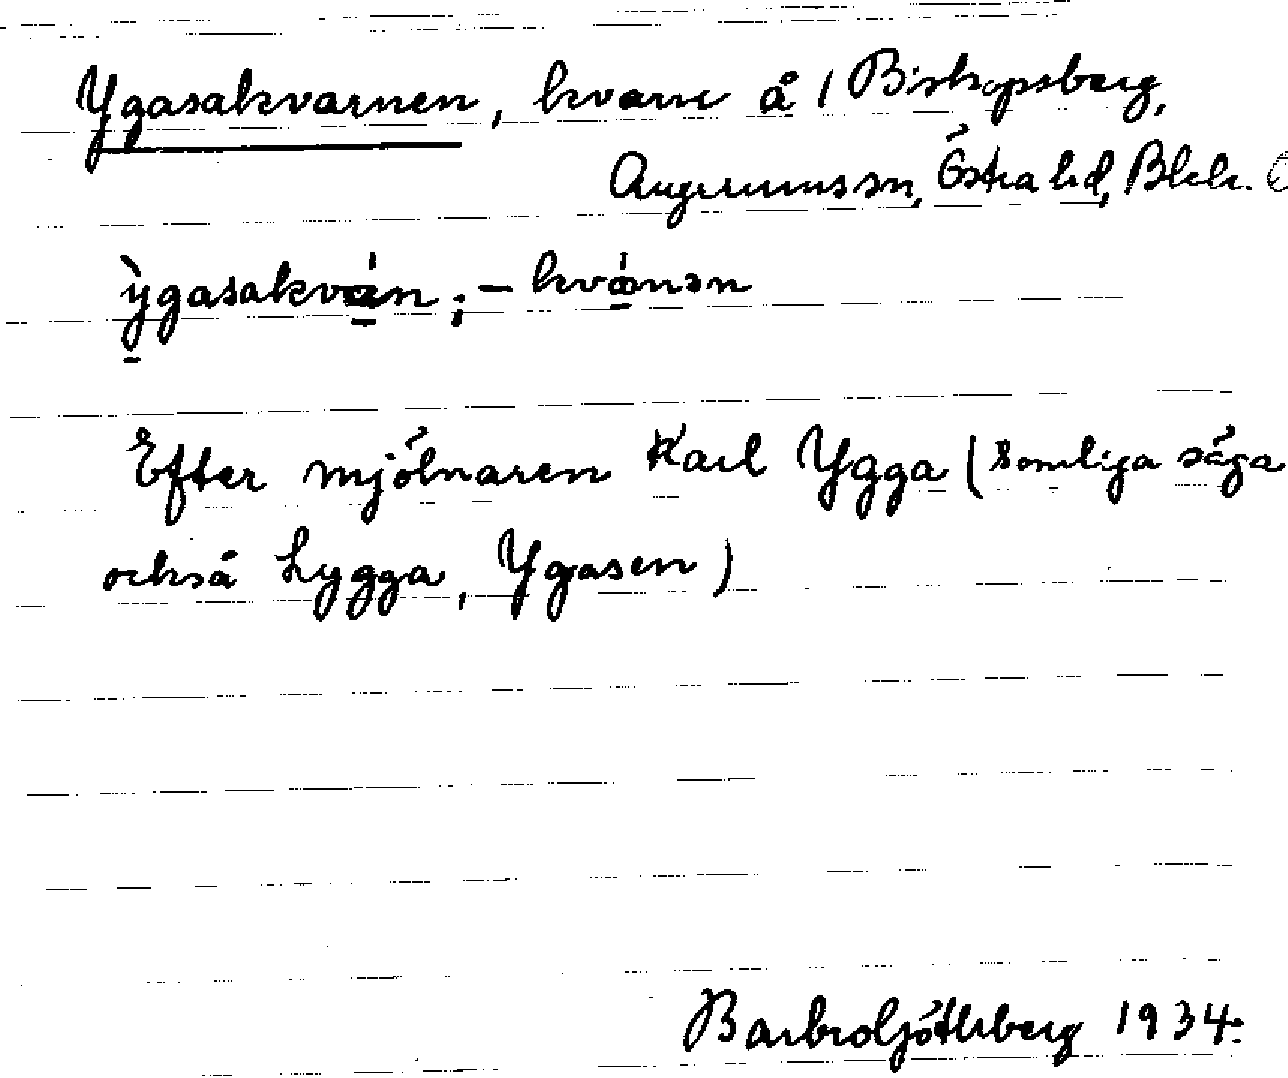 Ygasakvarnen, kvarn å 1 Biskopsberg,
Augerumssn, Östra hd, Blek.
ỳgasakván; – kvánən
Efter mjölnaren Karl Ygga (somliga säga
också Lygga, Ygasen)
Barbro Göthberg 1934.